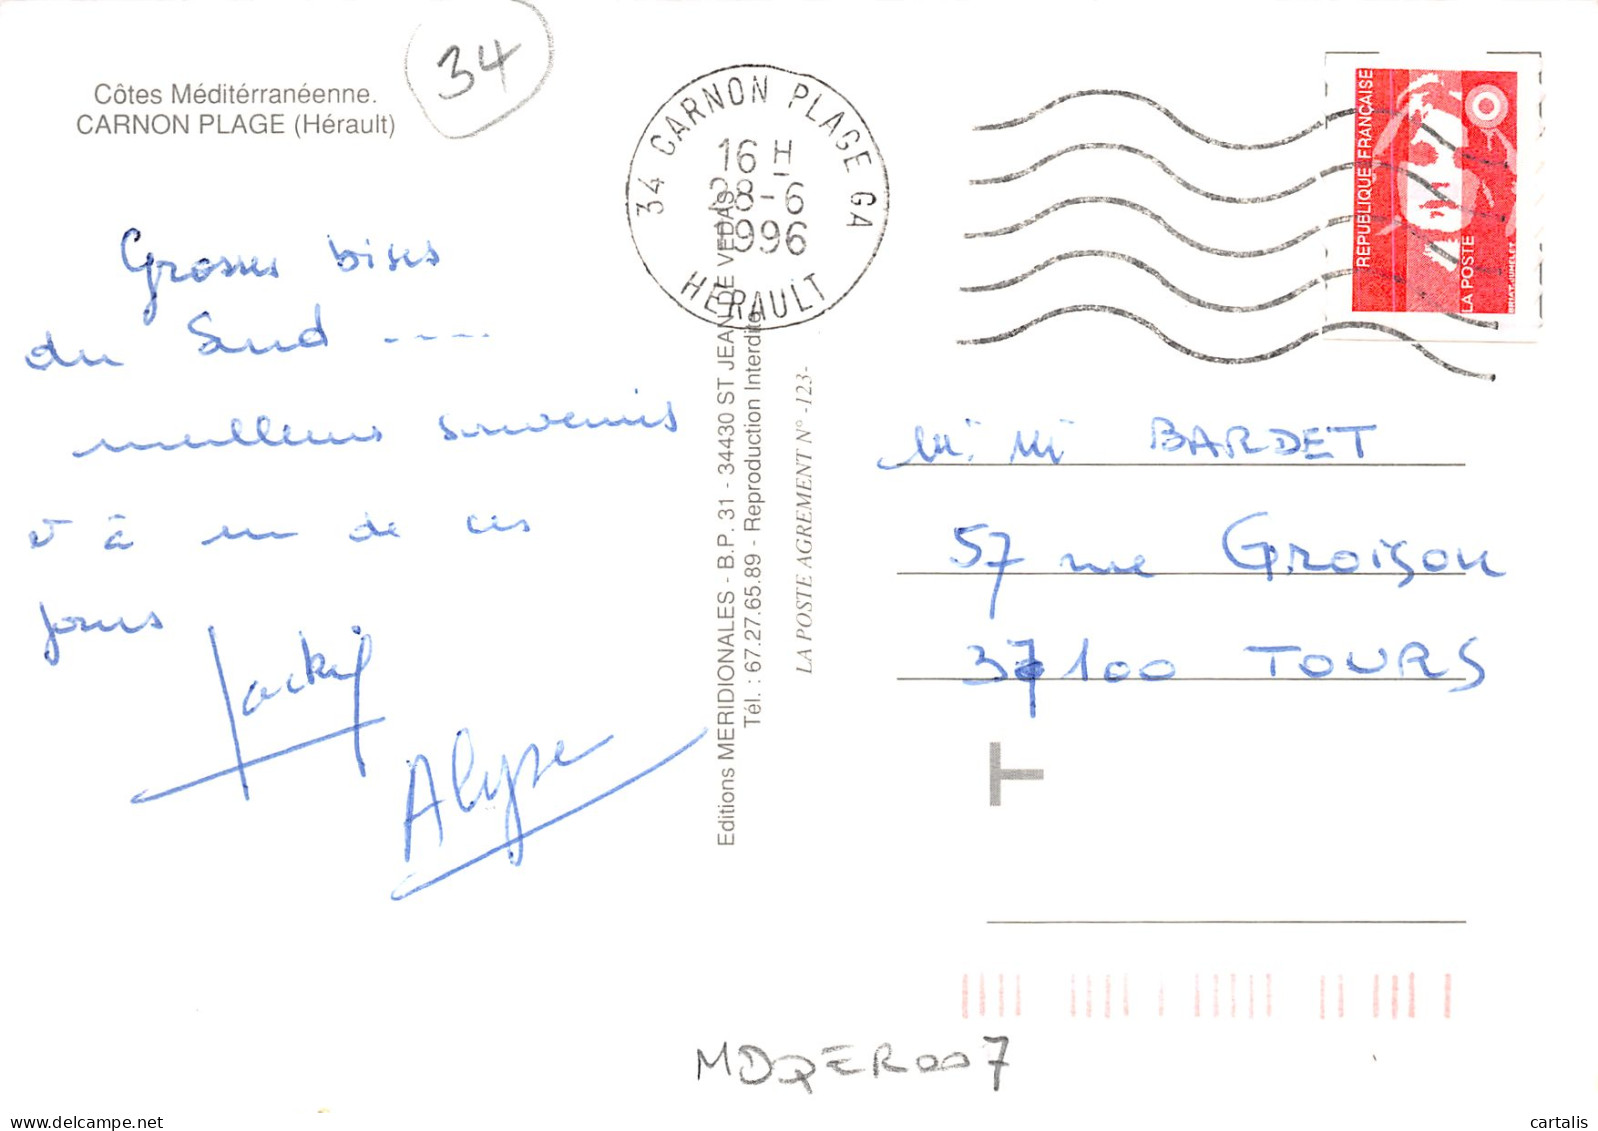 Côtes Méditérranéenne.
CARNON PLAGE (Hérault)
34
34 CARNON PLAGE GA
16 H
28-6
1996
HERAULT
REPUBLIQUE FRANÇAISE
LA POSTE
Grosses bises
du Sud ----
meilleurs souvenirs
et à un de ces
jours
Jacky
Alyse
Editions MERIDIONALES - B.P. 31 - 34430 ST JEAN DE VEDAS
Tél. : 67.27.65.89 - Reproduction Interdite
LA POSTE AGREMENT N° -123-
BARDET
57 rue Groison
37100 TOURS
T
MDQER007
cartalis